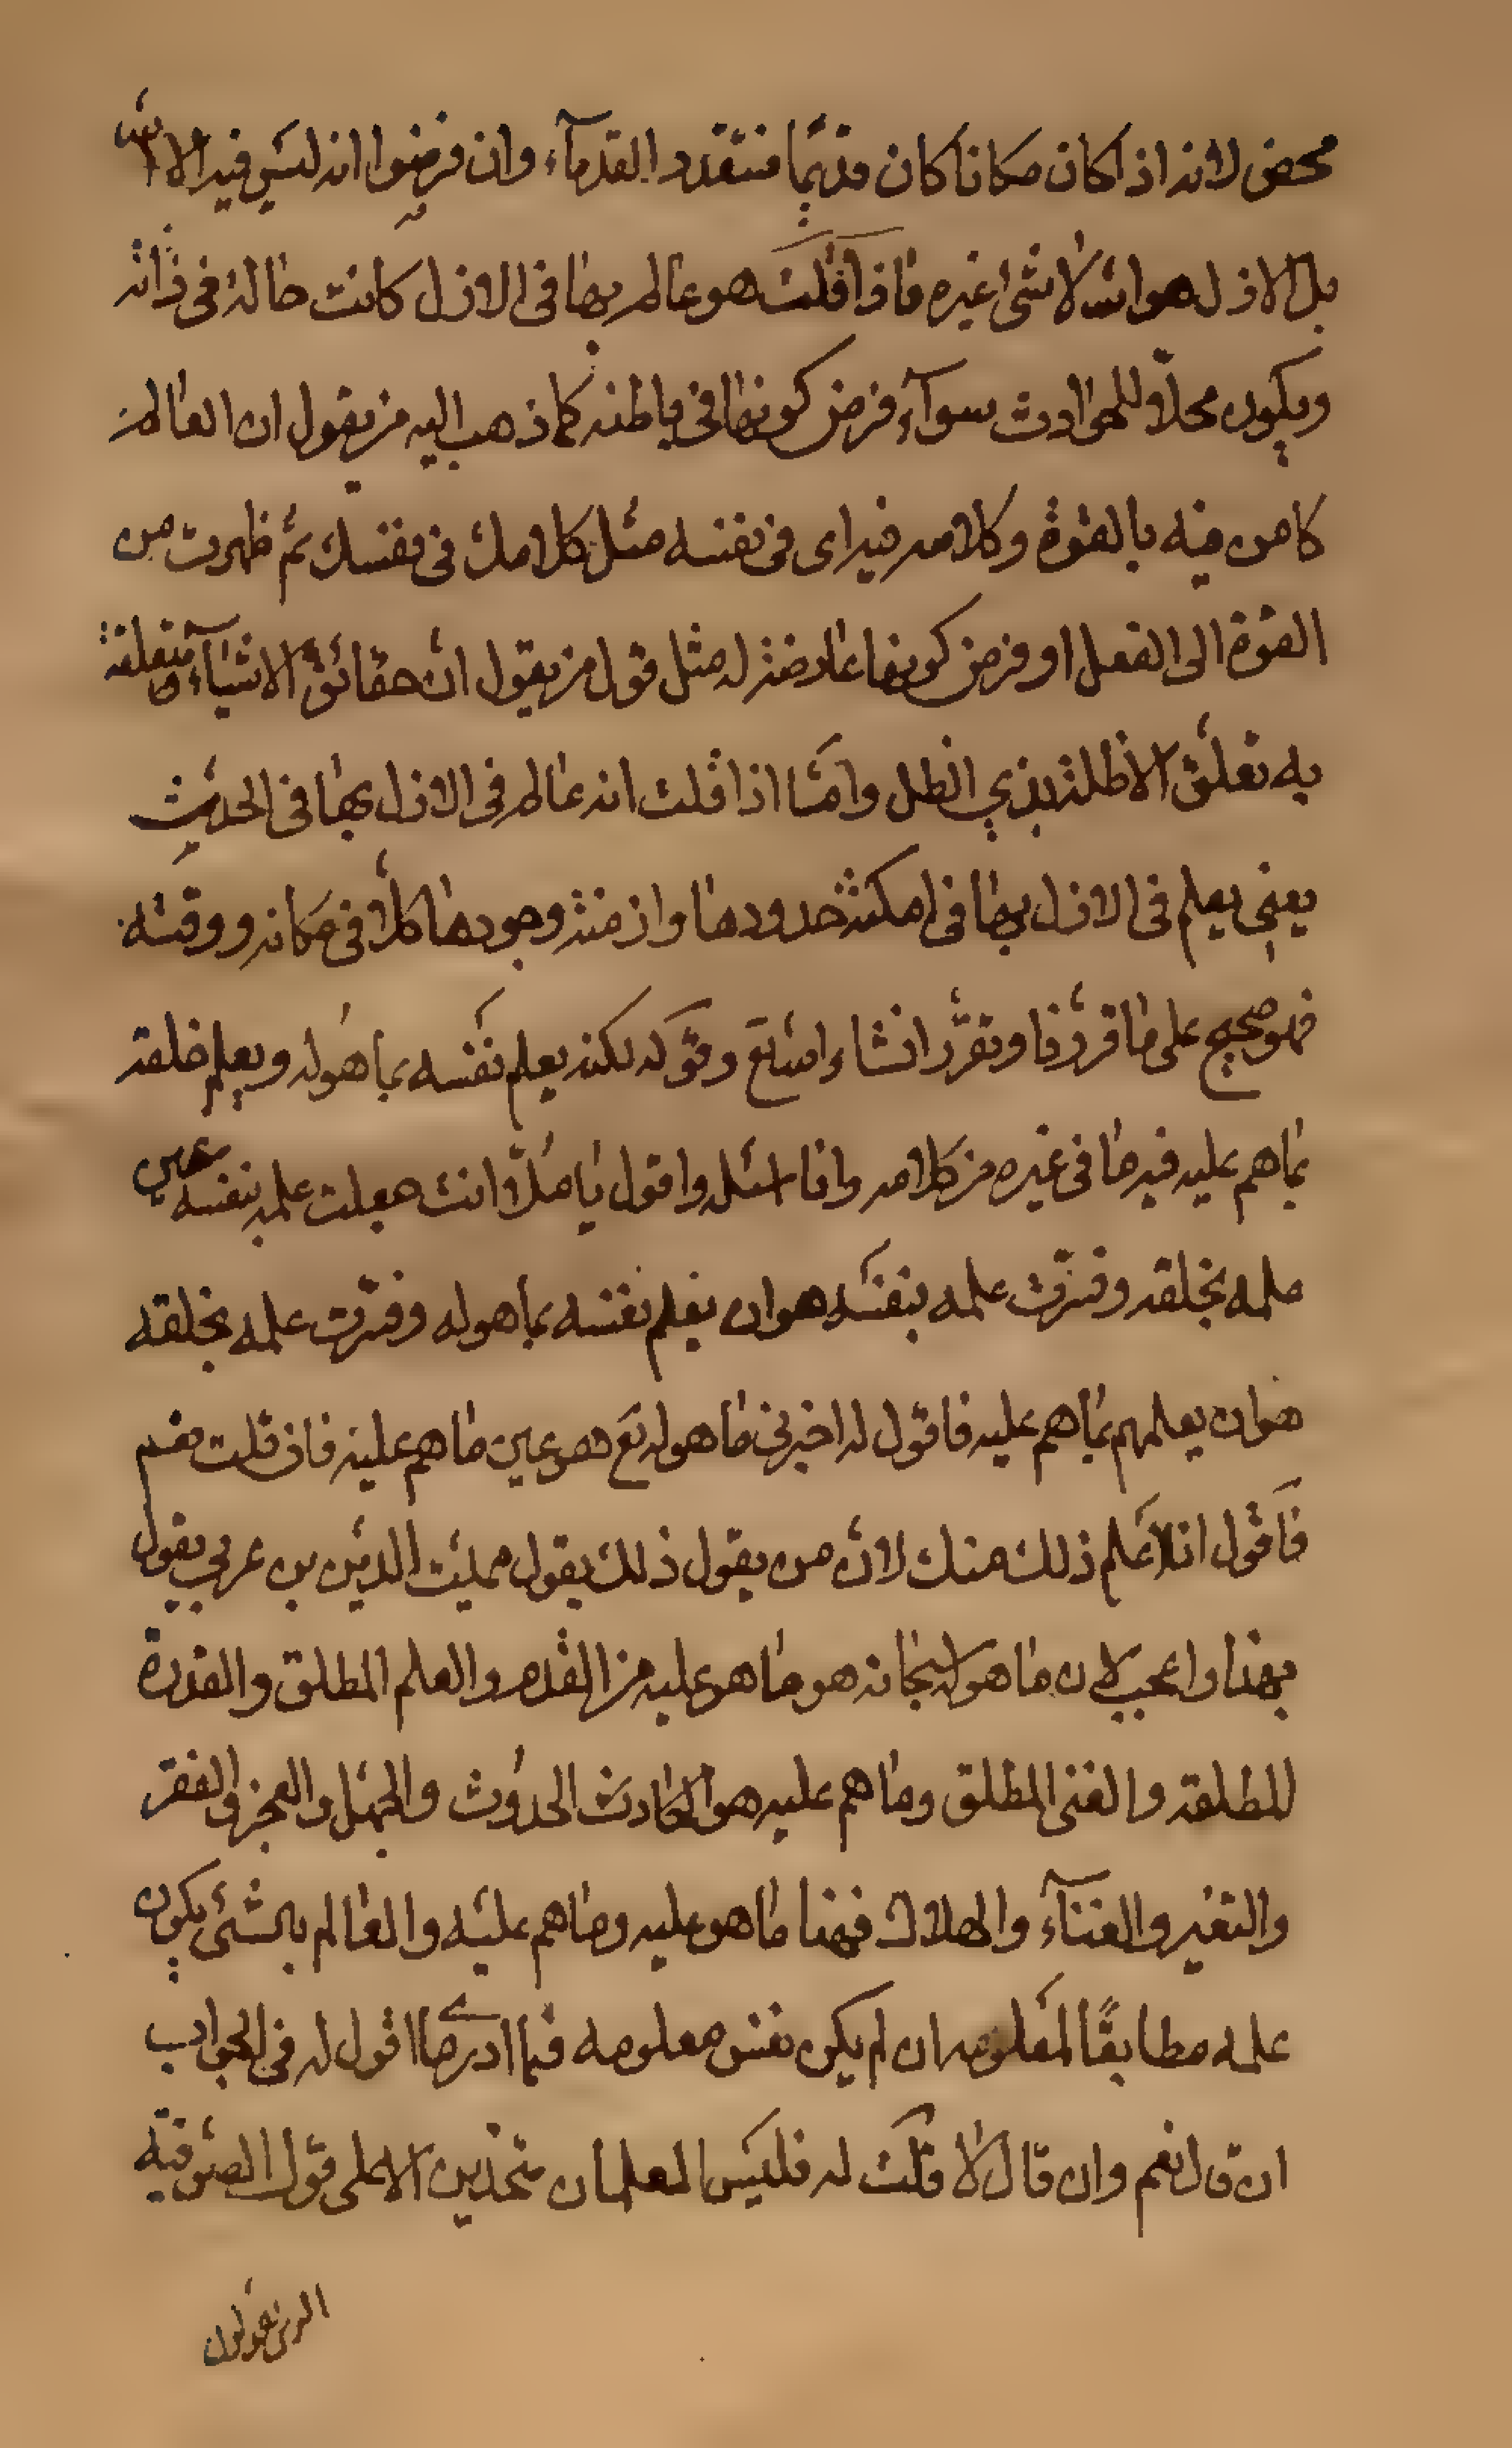 محض لانه اذا كان مكانا كان قديمًا فتتعدد القدمآء وان فرضوا انه ليس فيه الا الله
بل الازل هو الله لا شئ غيره فاذا قلت هو عالم بها فى الازل كانت حالة فى ذاته
ويكون محلّا للحوادث سوآء فرض كونها فى باطنه كما ذهب اليه من يقول ان العالم
كامن فيه بالقوة وكلامه فيه اى فى نفسه مثل كلامك فى نفسك ثم ظهرت من
القوة الى الفعل او فرض كونها عارضة له مثل قول من يقول انّ حقائق الاشيآء متعلقة
به تعلّق الاظلة بذي الظل وامّا اذا قلت انه عالم فى الازل بها فى الحدث
يعنى يعلم فى الازل بها فى امكنة حدودها وازمنة وجودها كلّا فى مكانه ووقته
فهو صحيح على ما قرّرنا ونقرّر انشاء الله تع وقوله لكنه يعلم نفسه بما هو له ويعلم خلقه
بما هم عليه فيه ما فى غيره من كلامه وانا اسئله واقول يا ملّا انت جعلت علمه بنفسه عين
علمه بخلقه وفسّرت علمه بنفسه هو ان يعلم نفسه بما هو له وفسّرت علمه بخلقه
هو ان يعلمهم بما هم عليه فاقول له اخبرنى ما هو له تع هو عين ما هم عليه فان قلت نعم
فاقول انا اعلم ذلك منك لانّ من يقول ذلك يقول مميت الدّين بن عربي يقول
بهذا واعجب لان ما هو له سبحانه هو ما هو عليه من القدم والعلم المطلق والقدرة
المطلقة والغنى المطلق وما هم عليه هو الحادث الحدوث والجهل والعجز والفقر
والتغير والفنآء والهلاك فهنا ما هو عليه وما هم عليه والعالم بالشئ يكون
علمه مطابقًا لمعلومه ان لم يكن نفس معلومه فما ادرى ما اقول له فى الجواب
ان قال نعم وان قال لا قلت له فليس العلمان متحدين الا على قول الصوفيّة
الذين يقولون